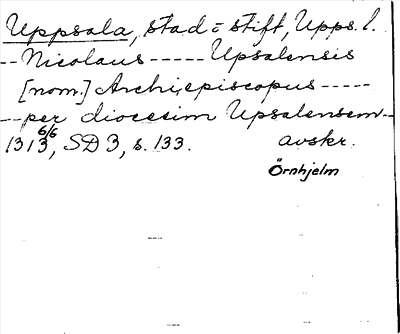 Uppsala, stad = stift, Upps. l.
-- Nicolaus ----- Upsalensis
[nom.] Archiepiscopus -----
-- per diocesim Upsalensem --
1313 6/6, SD 3, s. 133. avskr.
Örnhjelm